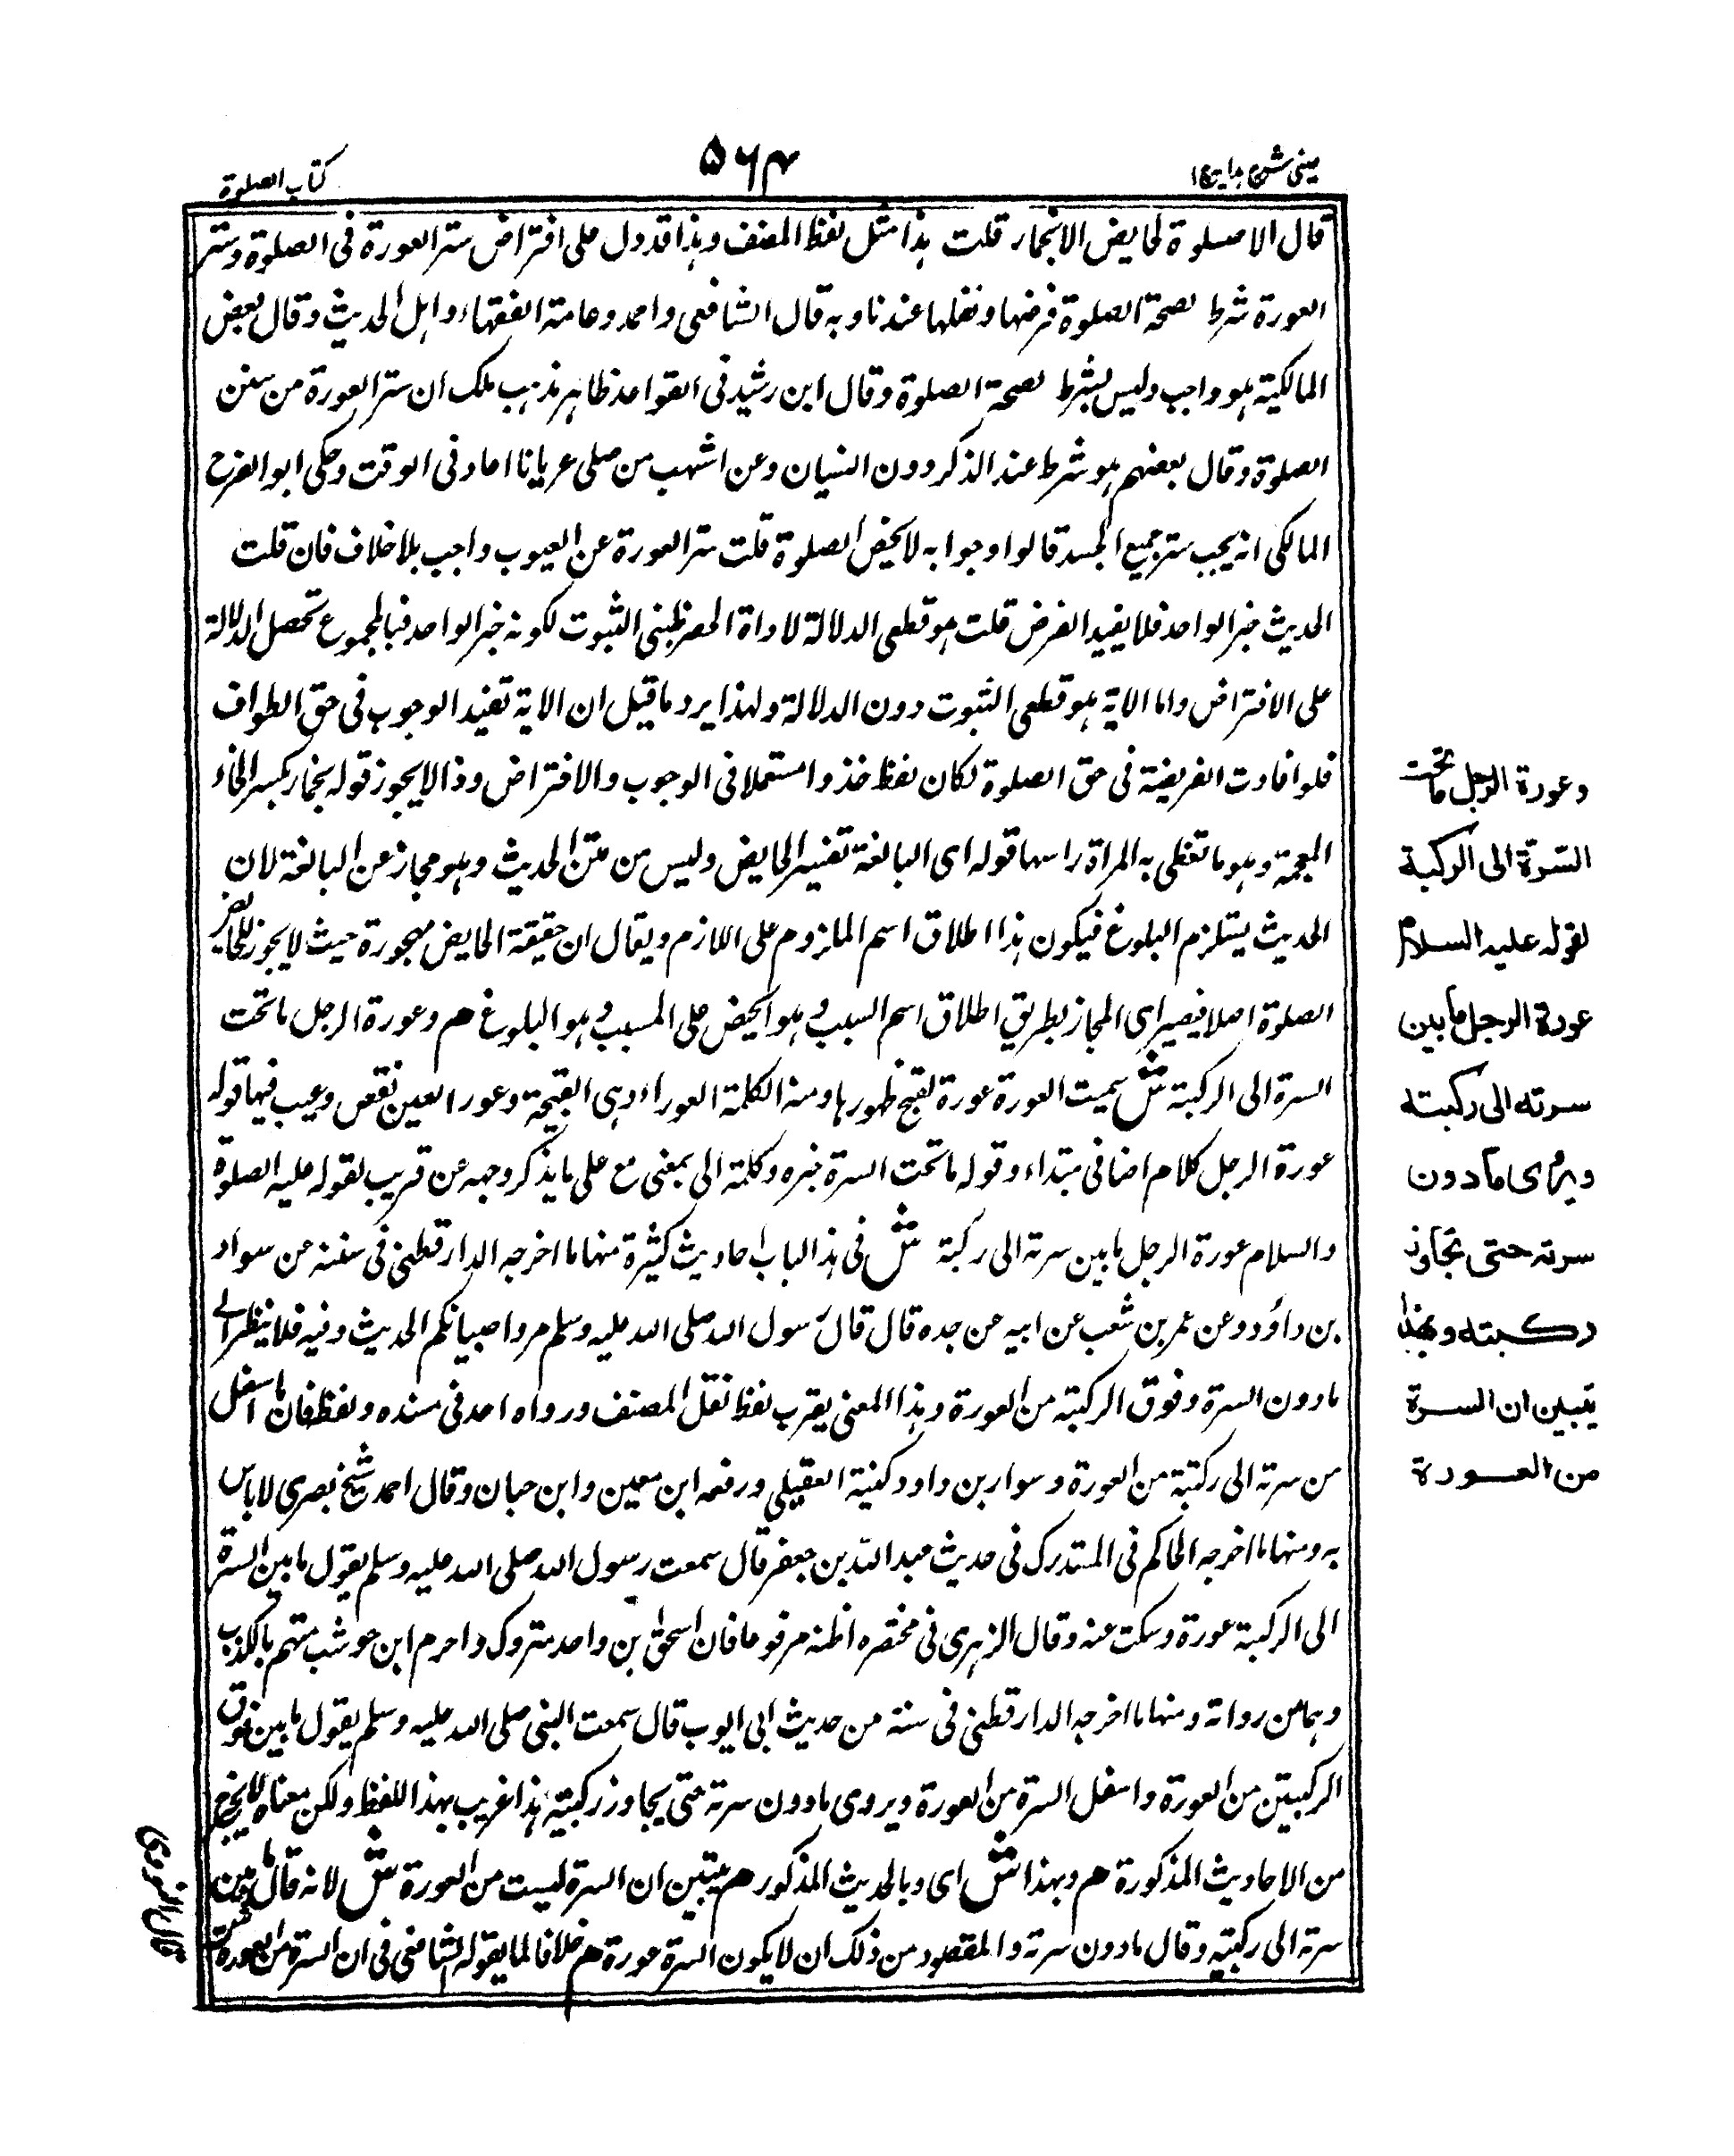 عینی شرح ہدایہ ج۱
۵۶۴
کتاب الصلوة
قال لا صلوة لحایض الا بخمار قلت ہذا مثل لفظ المصنف وہذا قد دل علی افتراض ستر العورة فی الصلوة وستر
العورة شرط لصحة الصلوة فرضہا ونفلہا عندنا وبہ قال الشافعی واحمد وعامة الفقہاء واہل الحدیث وقال بعض
المالکیة ہو واجب ولیس بشرط لصحة الصلوة وقال ابن رشید فی القواعد ظاہر مذہب ملک ان ستر العورة من سنن
الصلوة وقال بعضہم ہو شرط عند الذکر دون النسیان وعن اشہب من صلی عریانا اعاد فی الوقت وحکی ابو الفرج
المالکی انہ یجب ستر جمیع الجسد قالوا وجوابہ لا یخص الصلوة قلت ستر العورة عن العیوب واجب بلا خلاف فان قلت
الحدیث خبر الواحد فلا یفید الفرض قلت ہو قطعی الدلالة لاداة الحصر ظنی الثبوت لکونہ خبر الواحد فبالمجموع تحصل الدلالة
علی الافتراض واما الایة ہو قطعی الثبوت دون الدلالة ولہذا یرد ما قیل ان الایة تفید الوجوب فی حق الطواف
فلو افادت الفریضة فی حق الصلوة لکان لفظ خذوا مستعملا فی الوجوب والافتراض وذا لا یجوز قولہ بخمار بکسر الخاء
المعجمة وہو ما تغطی بہ المراة راسہا قولہ ای البالغة تفسیر الحایض ولیس من متن الحدیث وہو مجاز عن البالغة لان
الحدیث یستلزم البلوغ فیکون ہذا اطلاق اسم الملزوم علی اللازم ویقال ان حقیقة الحایض مہجورة حیث لا یجوز للحایض
الصلوة اصلا فیصیر ای المجاز بطریق اطلاق اسم السبب وہو الحیض علی المسبب وہو البلوغ هم وعورة الرجل ما تحت
السرة الی الرکبة ش سمیت العورة عورة لقبح ظہورہا ومنہ الکلمة العوراء وہی القبیحة وعور العین نقص وعیب فیہا قولہ
عورة الرجل کلام اضافی مبتداء وقولہ ما تحت السرة خبرہ وکلمة الی بمعنی مع علی ما یذکر وجہہ عن قریب لقولہ علیہ الصلوة
والسلام عورة الرجل ما بین سرتہ الی رکبة ش فی ہذ الباب احادیث کثیرة منہا ما اخرجہ الدارقطنی فی سننہ عن سواد
بن داؤد وعن عمر بن شعب عن ابیہ عن جدہ قال قال رسول اللہ صلی اللہ علیہ وسلم مروا صبیانکم الحدیث وفیہ فلا ینظر الی
مادون السرة وفوق الرکبتہ من العورة وہذا المعنی یقرب لفظ نقل المصنف ورواہ احمد فی مسندہ ولفظ فان ما اسفل
من سرتہ الی رکبتة من العورة وسوار بن داود کنیة العقیلی ورفعہ ابن معین وابن حبان وقال احمد شیخ بصری لاباس
بہ ومنہا ما اخرجہ الحاکم فی المستدرک فی حدیث عبد اللہ بن جعفر قال سمعت رسول اللہ صلی اللہ علیہ وسلم یقول ما بین السرة
الی الرکبة عورة وسکت عنہ وقال الزہری فی مختصرہ اظنہ مرفوعا فان اسحق بن واحد متروک واحرم ابن حوشب متہم بالکذب
وہما من رواتہ ومنہا ما اخرجہ الدارقطنی فی سننہ من حدیث ابی ایوب قال سمعت النبی صلی اللہ علیہ وسلم یقول ما بین فوق
الرکبتین من العورة واسفل السرة من العورة ویروی مادون سرتہ حتی یجاوز رکبتیہ ہذا غریب بہذا اللفظ ولکن معناہ لا یخرج
من الاحادیث المذکورة هم وبہذا ش ای وبالحدیث المذکور هم یتبین ان السرة لیست من العورة ش لانہ قال ما بین
سرتہ الی رکبتیہ وقال مادون سرتہ والمقصود من ذلک ان لا یکون السرة عورة هم خلافا لما یقولہ الشافعی فی ان السرة من العورة
وعورة الرجل ما تحت
السّرة الی الرکبة
لقوله علیه السلام
عورة الرجل ما بین
سرته الی رکبته
ویروی ما دون
سرته حتی تجاوز
رکبته وبهذا
یتبین ان السرة
من العورة
قال النووی